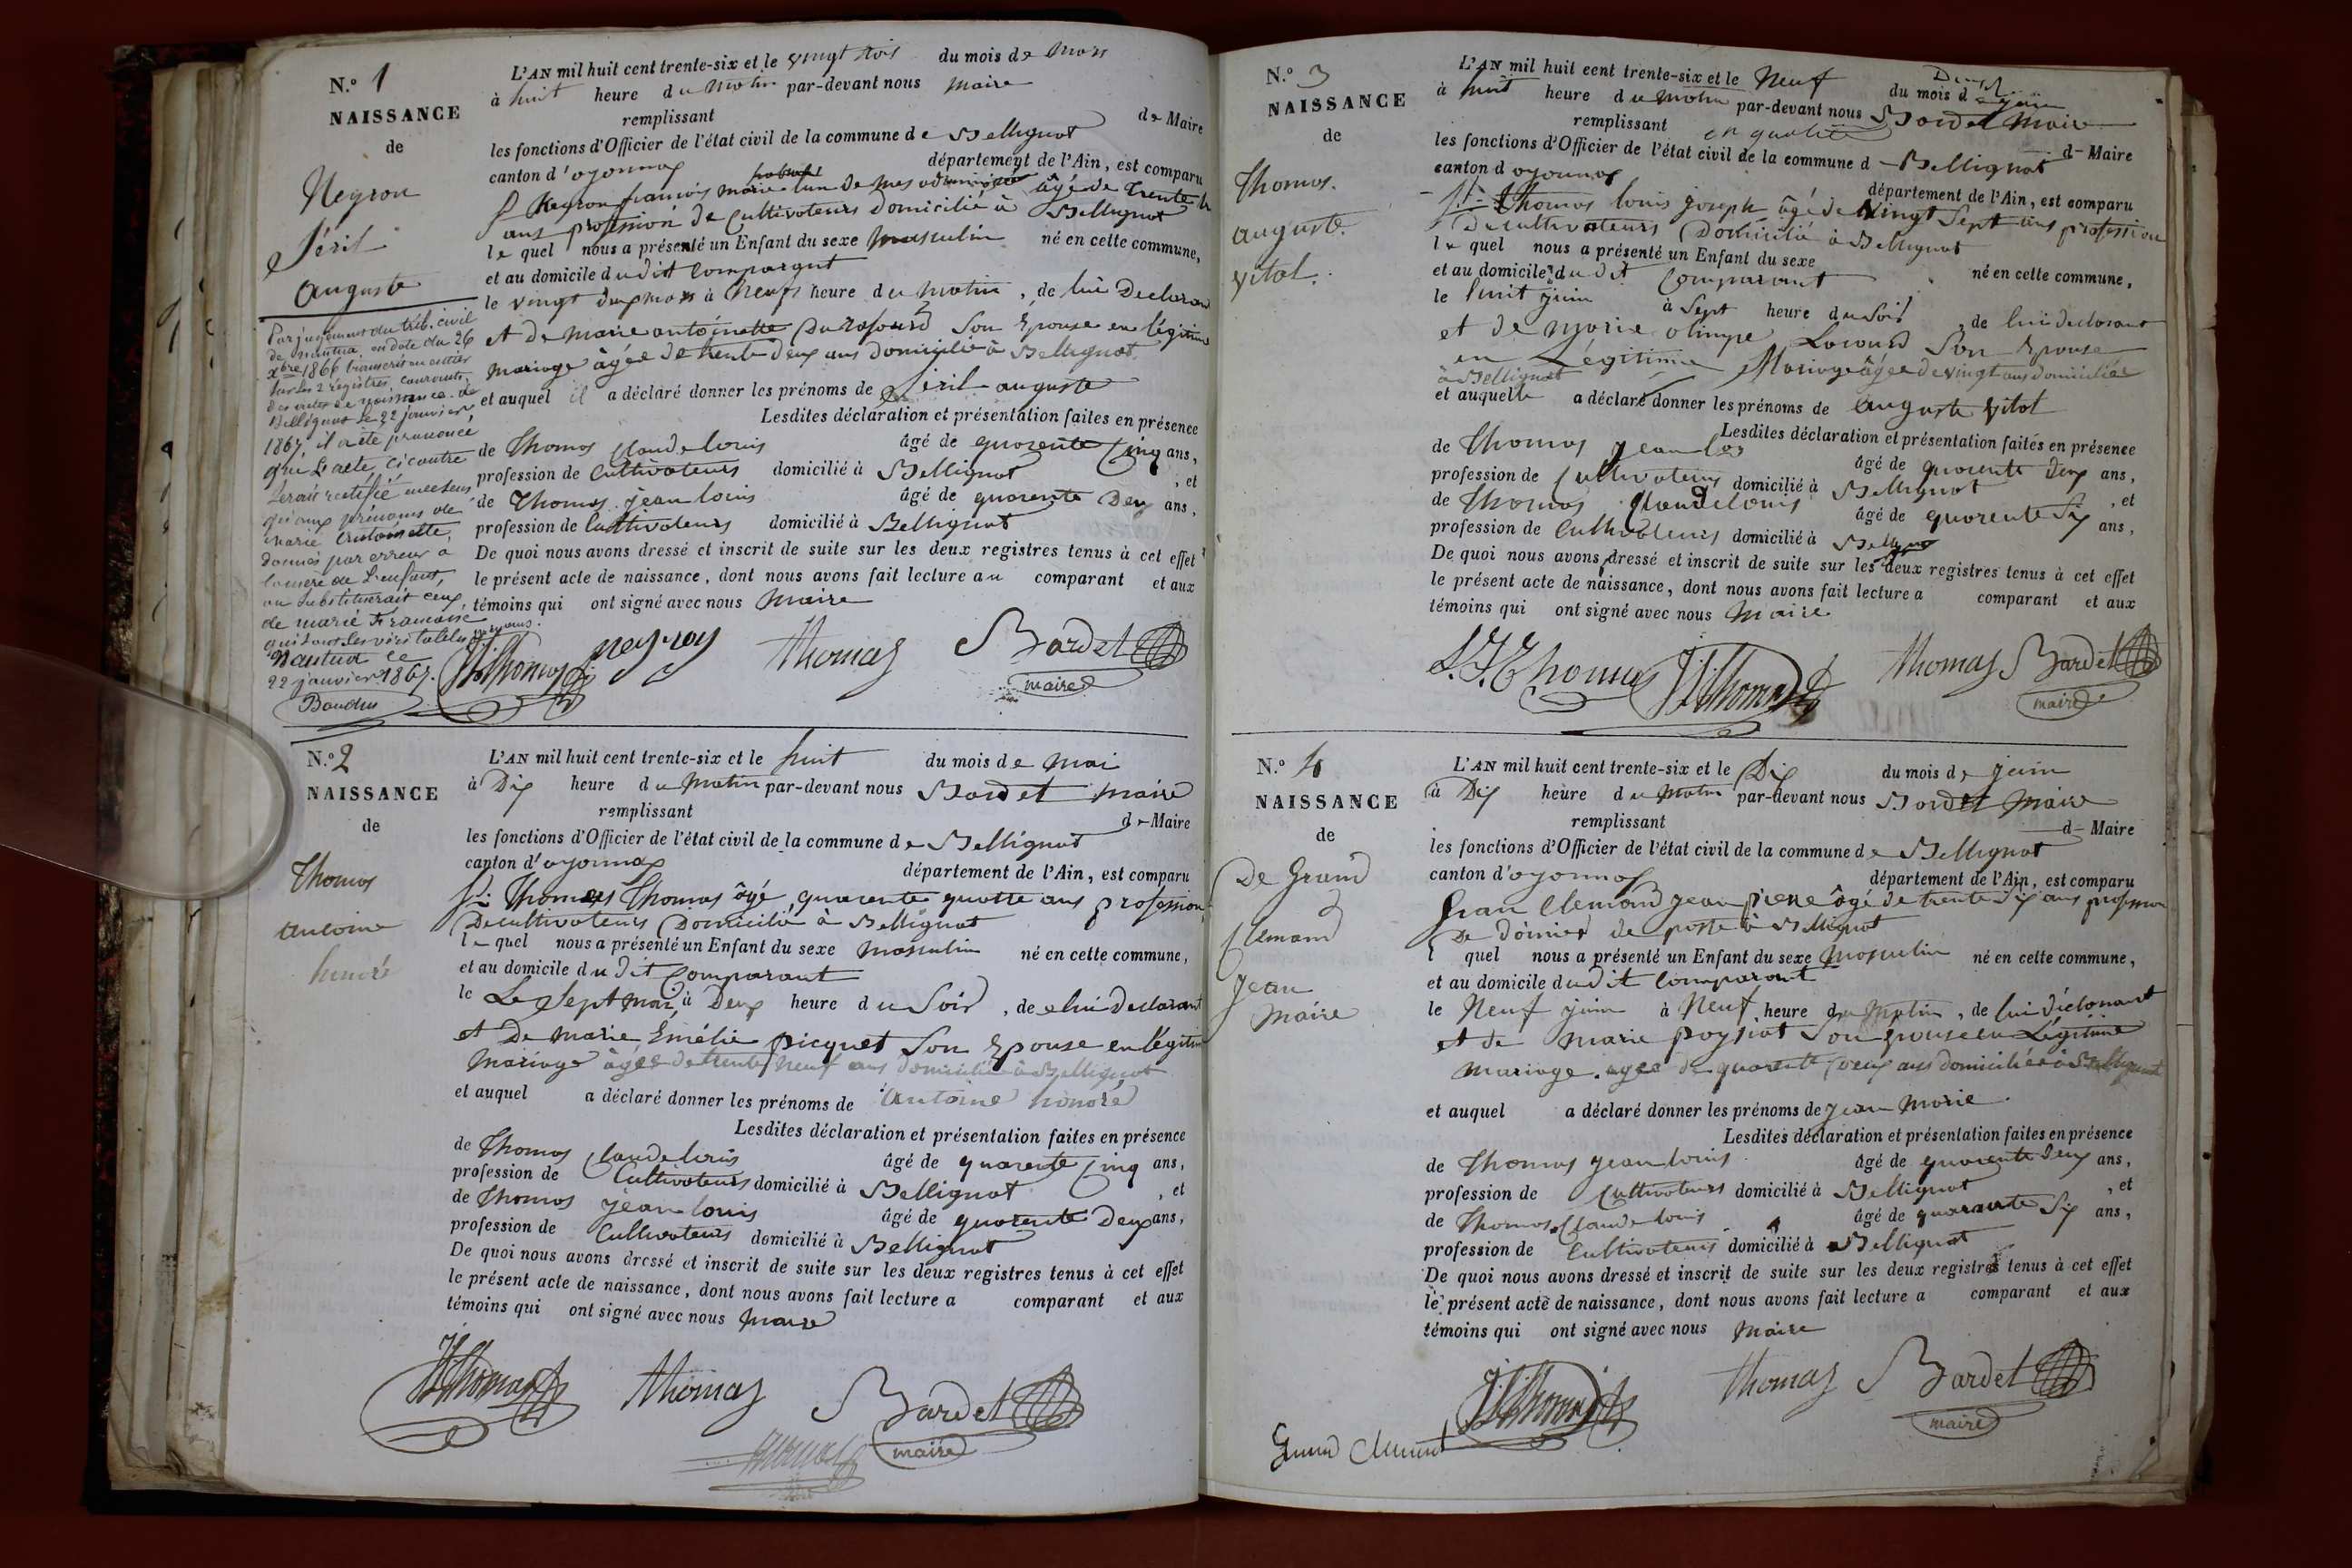 N.º 1
NAISSANCE
de
Neyron
Séril
Auguste
Par jugement du trib. civil
de Nantua, en date du 26
xbre 1866 transcrit en entier
sur les 2 registres courants
des actes de naissance de
Bellignat le 22 janvier
1867, il a été prononcé
que l'acte ci contre
serait rectifié en ce sens
qu'aux prénoms de
marie antoinette,
donnés par erreur à
la mère de l'enfant,
on substituerait ceux
de marie Françoise
qui sont les véritables prénoms.
Nantua ce
22 janvier 1867.
L'AN mil huit cent trente-six et le vingt trois du mois de Mars
à huit heure du Matin par-devant nous Maire
remplissant de Maire
les fonctions d'Officier de l'état civil de la commune de Bellignat
canton d'oyonnax département de l'Ain, est comparu
Neyron francois marie l'un de mes administrés âgé de trente
ans profession de Cultivateurs domicilié à Bellignat
lequel nous a présenté un Enfant du sexe masculin né en cette commune,
et au domicile dudit Comparant
le vingt deux mars à Neuf heure du Matin, de lui Declarant
et de marie antoinette son Epouse en légitime
mariage âgée de trente deux ans domicilié à Bellignat
et auquel il a déclaré donner les prénoms de Séril auguste
Lesdites déclaration et présentation faites en présence
de Thomas Claude louis âgé de quarente Cinq ans,
profession de Cultivateurs domicilié à Bellignat, et
de Thomas jean louis âgé de quarente Deux ans,
profession de Cultivateurs domicilié à Bellignat
De quoi nous avons dressé et inscrit de suite sur les deux registres tenus à cet effet
le présent acte de naissance, dont nous avons fait lecture au comparant et aux
témoins qui ont signé avec nous Maire
JLThomas neyron Thomas Bardet
maire
N.º 2
NAISSANCE
de
Thomas
antoine
honoré
L'AN mil huit cent trente-six et le huit du mois de Mai
à Dix heure du Matin par-devant nous Bardet maire
remplissant de Maire
les fonctions d'Officier de l'état civil de la commune de Bellignat
canton d'oyonnax département de l'Ain, est comparu
Sr. Thomas Thomas âgé quarente quatre ans profession
De cultivateurs Domicilié à Bellignat
lequel nous a présenté un Enfant du sexe Masculin né en cette commune,
et au domicile dudit Comparant
le Le Sept mai à Deux heure du Soir, de lui Declarant
et De Marie Emélie picquet Son Epouse en légitime
Mariage âgée de trente Neuf ans domicilié à Bellignat
et auquel a déclaré donner les prénoms de antoine honoré
Lesdites déclaration et présentation faites en présence
de Thomas Claude louis âgé de quarente Cinq ans,
profession de Cultivateurs domicilié à Bellignat, et
de Thomas jean louis âgé de quarente Deux ans,
profession de Cultivateurs domicilié à Bellignat
De quoi nous avons dressé et inscrit de suite sur les deux registres tenus à cet effet
le présent acte de naissance, dont nous avons fait lecture a comparant et aux
témoins qui ont signé avec nous Maire
JLThomas Thomas Bardet
maire
N.º 3
NAISSANCE
de
Thomas.
auguste.
vital.
L'AN mil huit cent trente-six et le Neuf du mois de juin
à huit heure du Matin par-devant nous Bardet Maire
remplissant en qualité de Maire
les fonctions d'Officier de l'état civil de la commune d Bellignat
canton d oyonnax département de l'Ain, est comparu
Sr. Thomas louis joseph âgé de Vingt Sept ans profession
De cultivateurs Domicilié à Bellignat
lequel nous a présenté un Enfant du sexe né en cette commune,
et au domicile dudit Comparant
le huit juin à Sept heure du Soir, de lui declarant
et de Marie olimpe Son Epouse
en Légitime Mariage âgée de vingt ans domiciliée
à Bellignat
et auquelle a déclaré donner les prénoms de auguste vital
Lesdites déclaration et présentation faites en présence
de Thomas jean louis âgé de quarente deux ans,
profession de Cultivateurs domicilié à Bellignat, et
de Thomas Claude louis âgé de quarente Six ans,
profession de Cultivateurs domicilié à Bellignat
De quoi nous avons dressé et inscrit de suite sur les deux registres tenus à cet effet
le présent acte de naissance, dont nous avons fait lecture a comparant et aux
témoins qui ont signé avec nous Maire
L.J. Thomas JLThomas Thomas Bardet
maire
N.º 4
NAISSANCE
de
De Grand
Clemand
Jean
Marie
L'AN mil huit cent trente-six et le Dix du mois de juin
à Dix heure du Matin par-devant nous Bardet Maire
remplissant d Maire
les fonctions d'Officier de l'état civil de la commune de Bellignat
canton d'oyonnax département de l'Ain, est comparu
Gran Clemand jean pierre âgé de trente Six ans profession
De de poste à Bellignat
l quel nous a présenté un Enfant du sexe Masculin né en cette commune,
et au domicile dudit Comparant
le Neuf juin à Neuf heure du Matin, de lui déclarant
et de Marie poysiat Son epouse en Légitime
Mariage. agée de quarente Deux ans domiciliée à Bellignat
et auquel a déclaré donner les prénoms de jean Marie.
Lesdites déclaration et présentation faites en présence
de Thomas jean louis âgé de quarente deux ans,
profession de Cultivateurs domicilié à Bellignat, et
de Thomas Claude louis âgé de quarante Six ans,
profession de Cultivateurs domicilié à Bellignat
De quoi nous avons dressé et inscrit de suite sur les deux registres tenus à cet effet
le présent acte de naissance, dont nous avons fait lecture a comparant et aux
témoins qui ont signé avec nous Maire
JLThomas Thomas Bardet
maire
Grand Clement